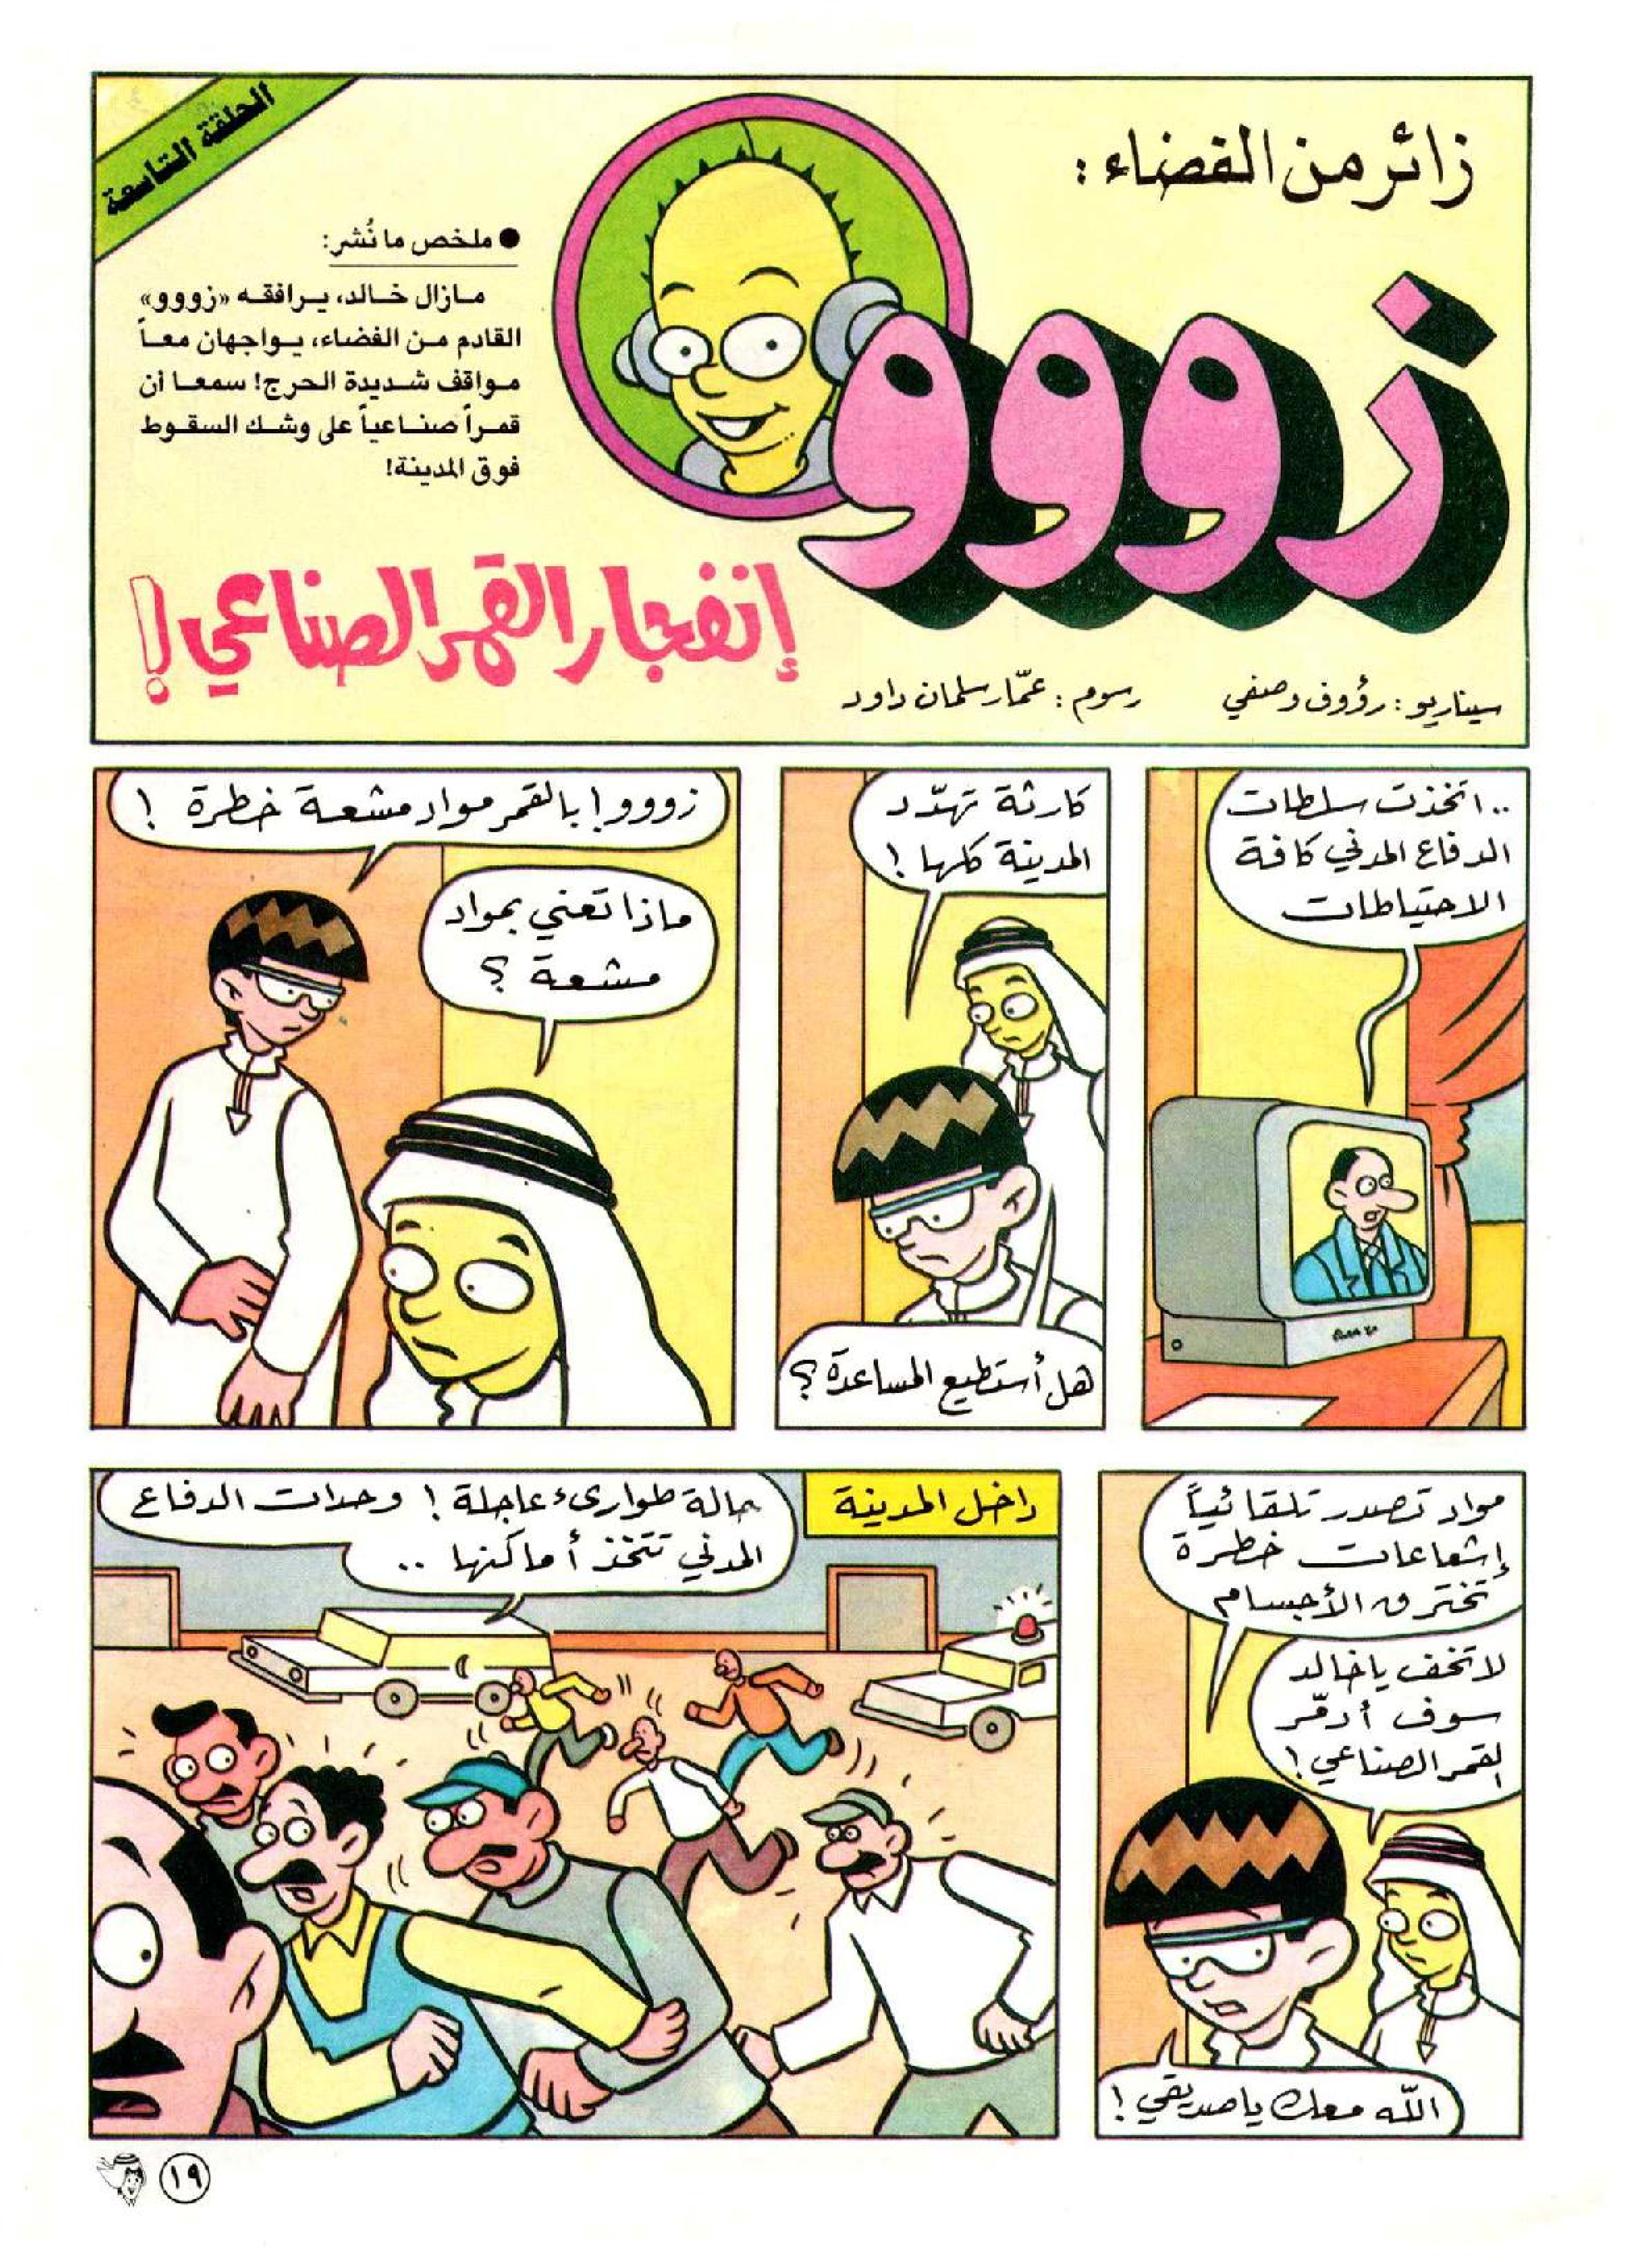 الحلقة التاسعة
زائر من الفضاء :
زووو
● ملخص ما نُشر:
مازال خالد، يرافقه «زووو»
القادم من الفضاء، يواجهان معاً
مواقف شديدة الحرج! سمعا أن
قمراً صناعياً على وشك السقوط
فوق المدينة!
إنفجار القمر الصناعي !
سيناريو : رؤوف وصفي
رسوم : عمّار سلمان داود
.. اتخذت سلطات
الدفاع المدني كافة
الاحتياطات
كارثة تهدّد
المدينة كلها !
هل أستطيع المساعدة ؟
زووو ! بالقمر مواد مشعة خطرة !
ماذا تعني بمواد
مشعة ؟
مواد تصدر تلقائياً
إشعاعات خطرة
تخترق الأجسام
لا تخف يا خالد
سوف أدمّر
لقمر الصناعي !
الله معك يا صديقي !
داخل المدينة
حالة طوارىء عاجلة ! وحدات الدفاع
المدني تتخذ أماكنها ..
١٩